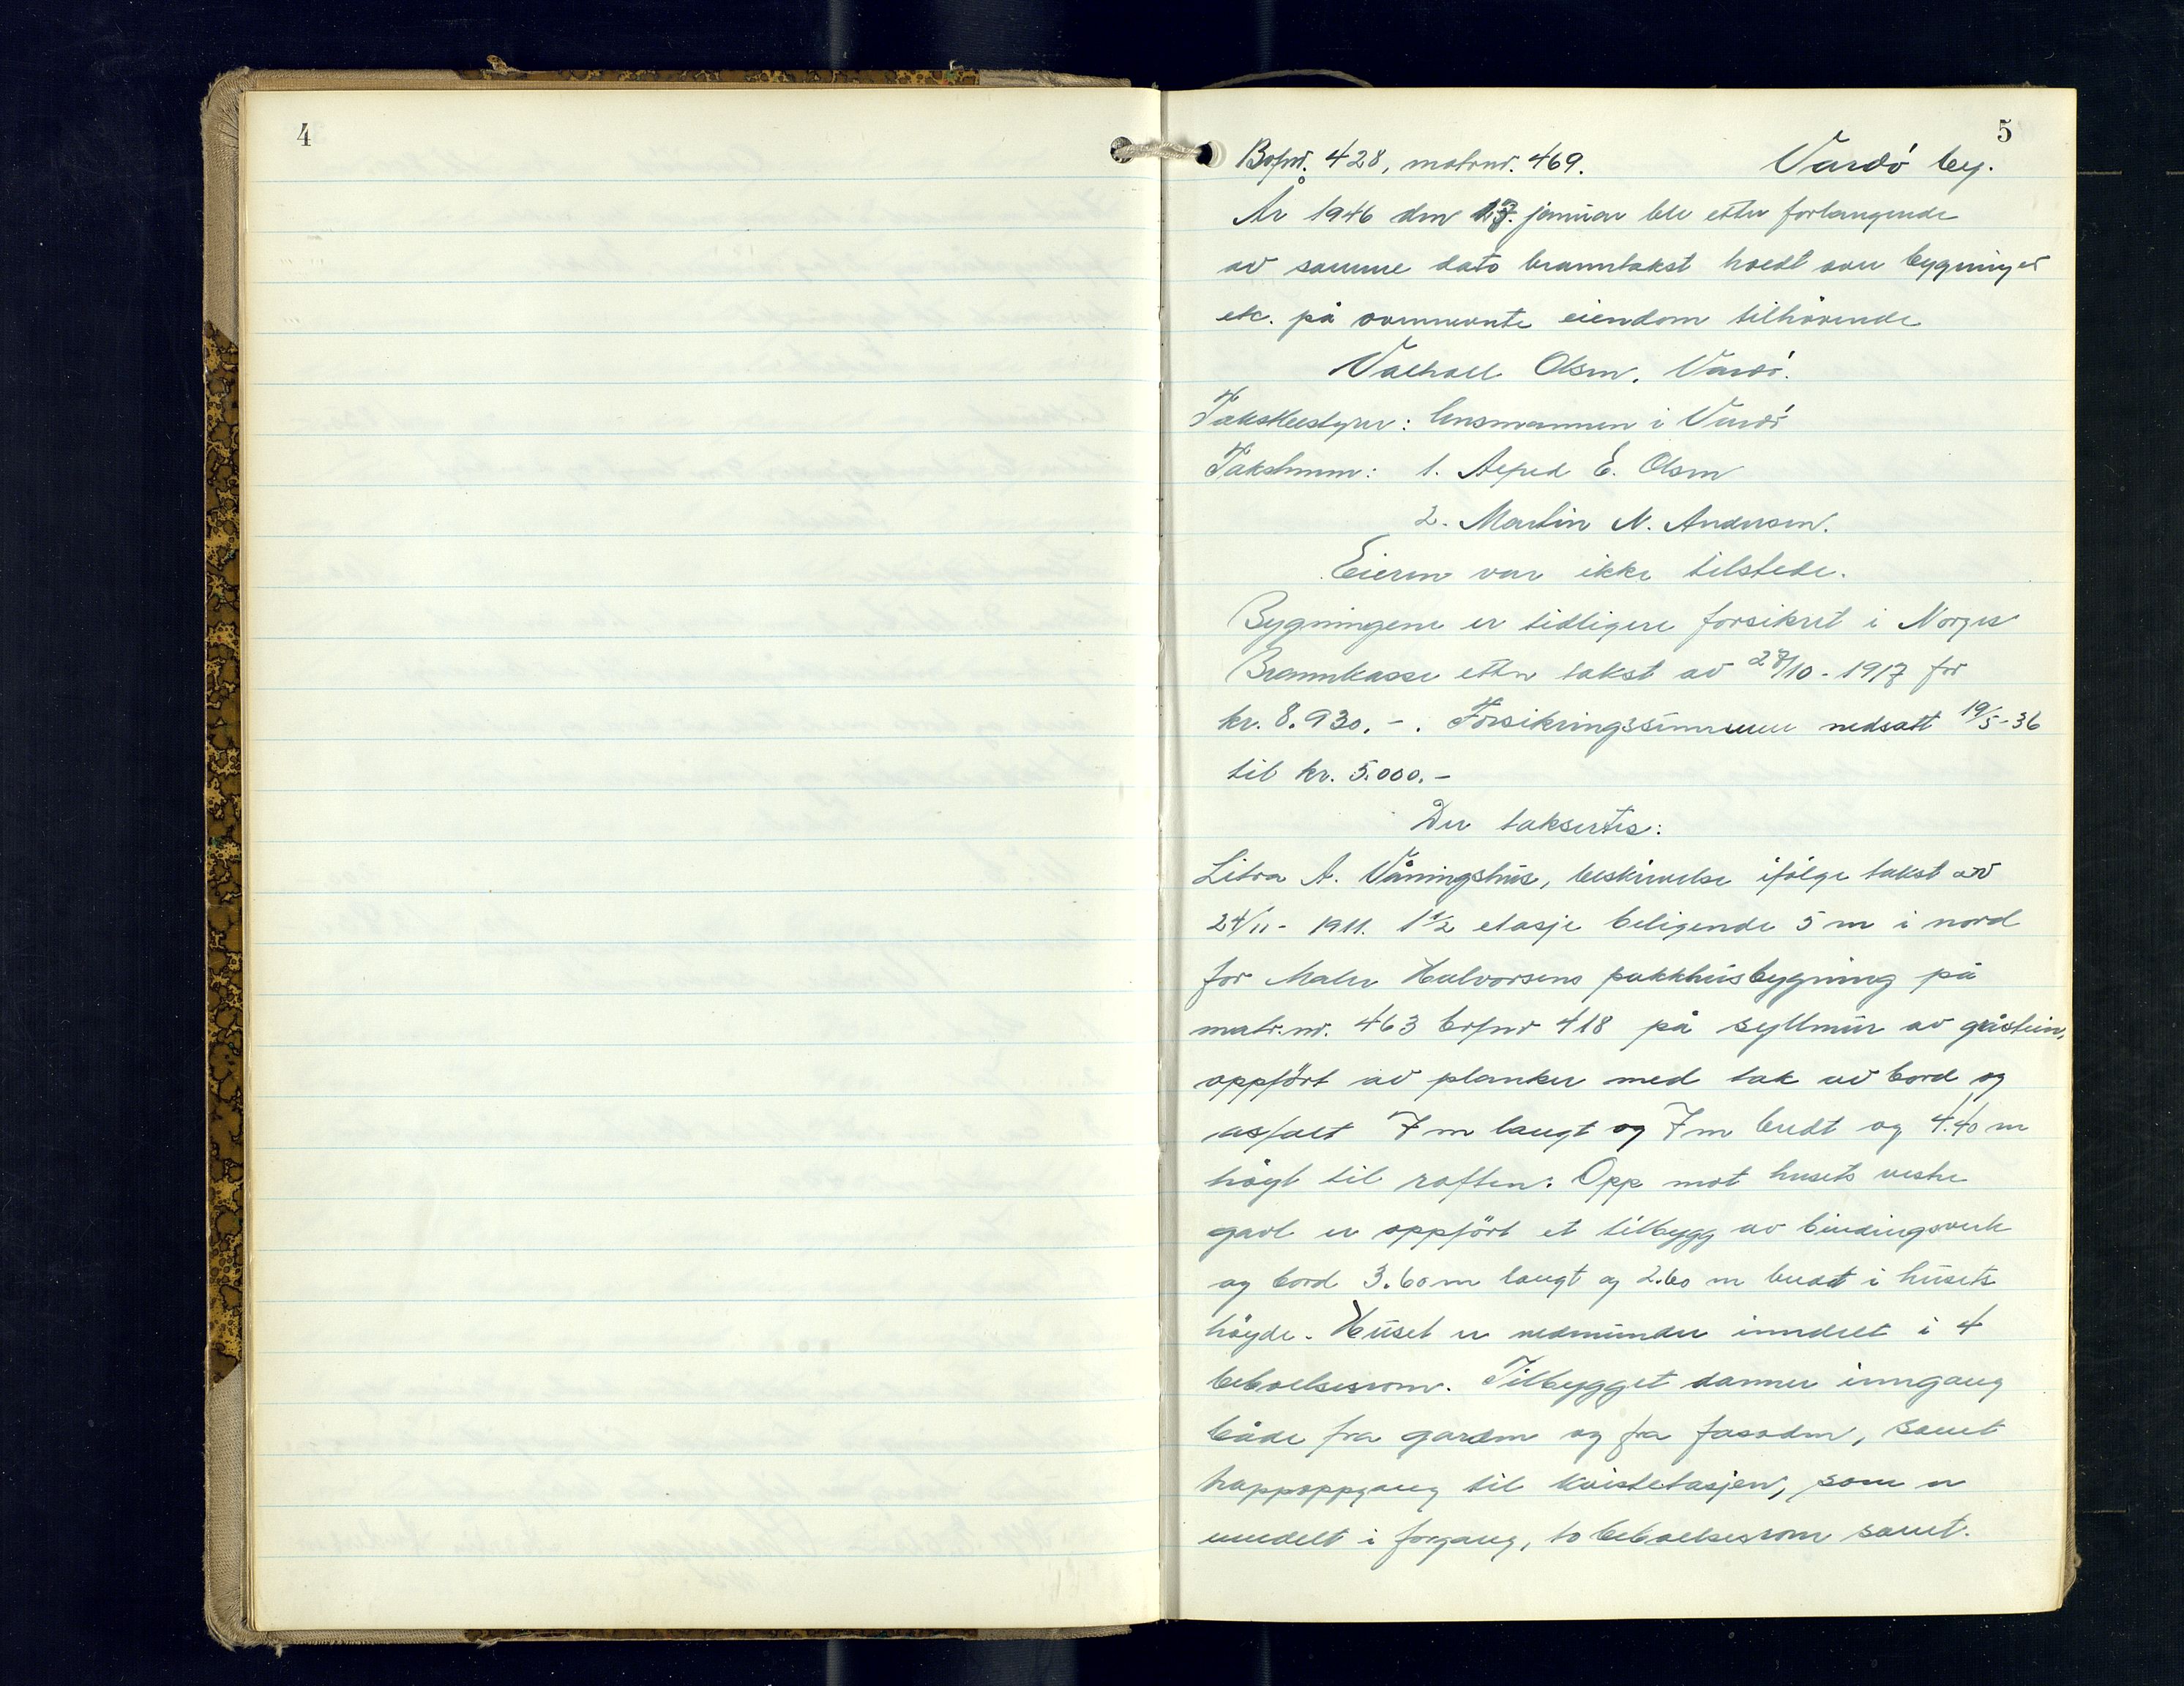 4
5
Brfnr. 428, matrnr. 469. Vardö by.
År 1946 den 17. januar ble etter forlangende
av samme dato branntakst hvedt over bygninger
etc. på ovennevnte eiendom tilhörende
Valhall Olsen, Vardö.
Takstbestyrer: lensmannen i Vardö
Takstmenn: 1. Alfred E. Olsen
2. Martin N. Andersen.
Eieren var ikke tilstede.
Bygningene er tidligere forsikret i Norges
Brannkasse etter takst av 27/10-1917 for
kr. 8.930.-. Forsikringssummen nedsatt 19/5-36
til kr. 5.000.-
Der taksertes:
Litra A. Våningshus, beskrivelse ifölge takst av
24/11- 1911. 1 1/2 etasje beligende 5 m i nord
for Maler Halvorsens pakkhusbygning på
matr.nr. 463 brfnr 418 på syllmur av gråstein,
oppfört av planker med tak av bord og
asfalt 7 m langt og 7 m bredt og 4.40 m
höyt til raften. Opp mot husets vestre
gavl er oppfört et tilbygg av bindingsverk
og bord 3.60 m langt og 2.60 m bredt i husets
höyde. Huset er nedmunder inndelt i 4
beboelsesrom. Tilbygget danner inngang
både fra gården og fra fasaden, samt
trappoppgang til kvistetasjen, som er
inndelt i forgang, to beboelsesrom samt.